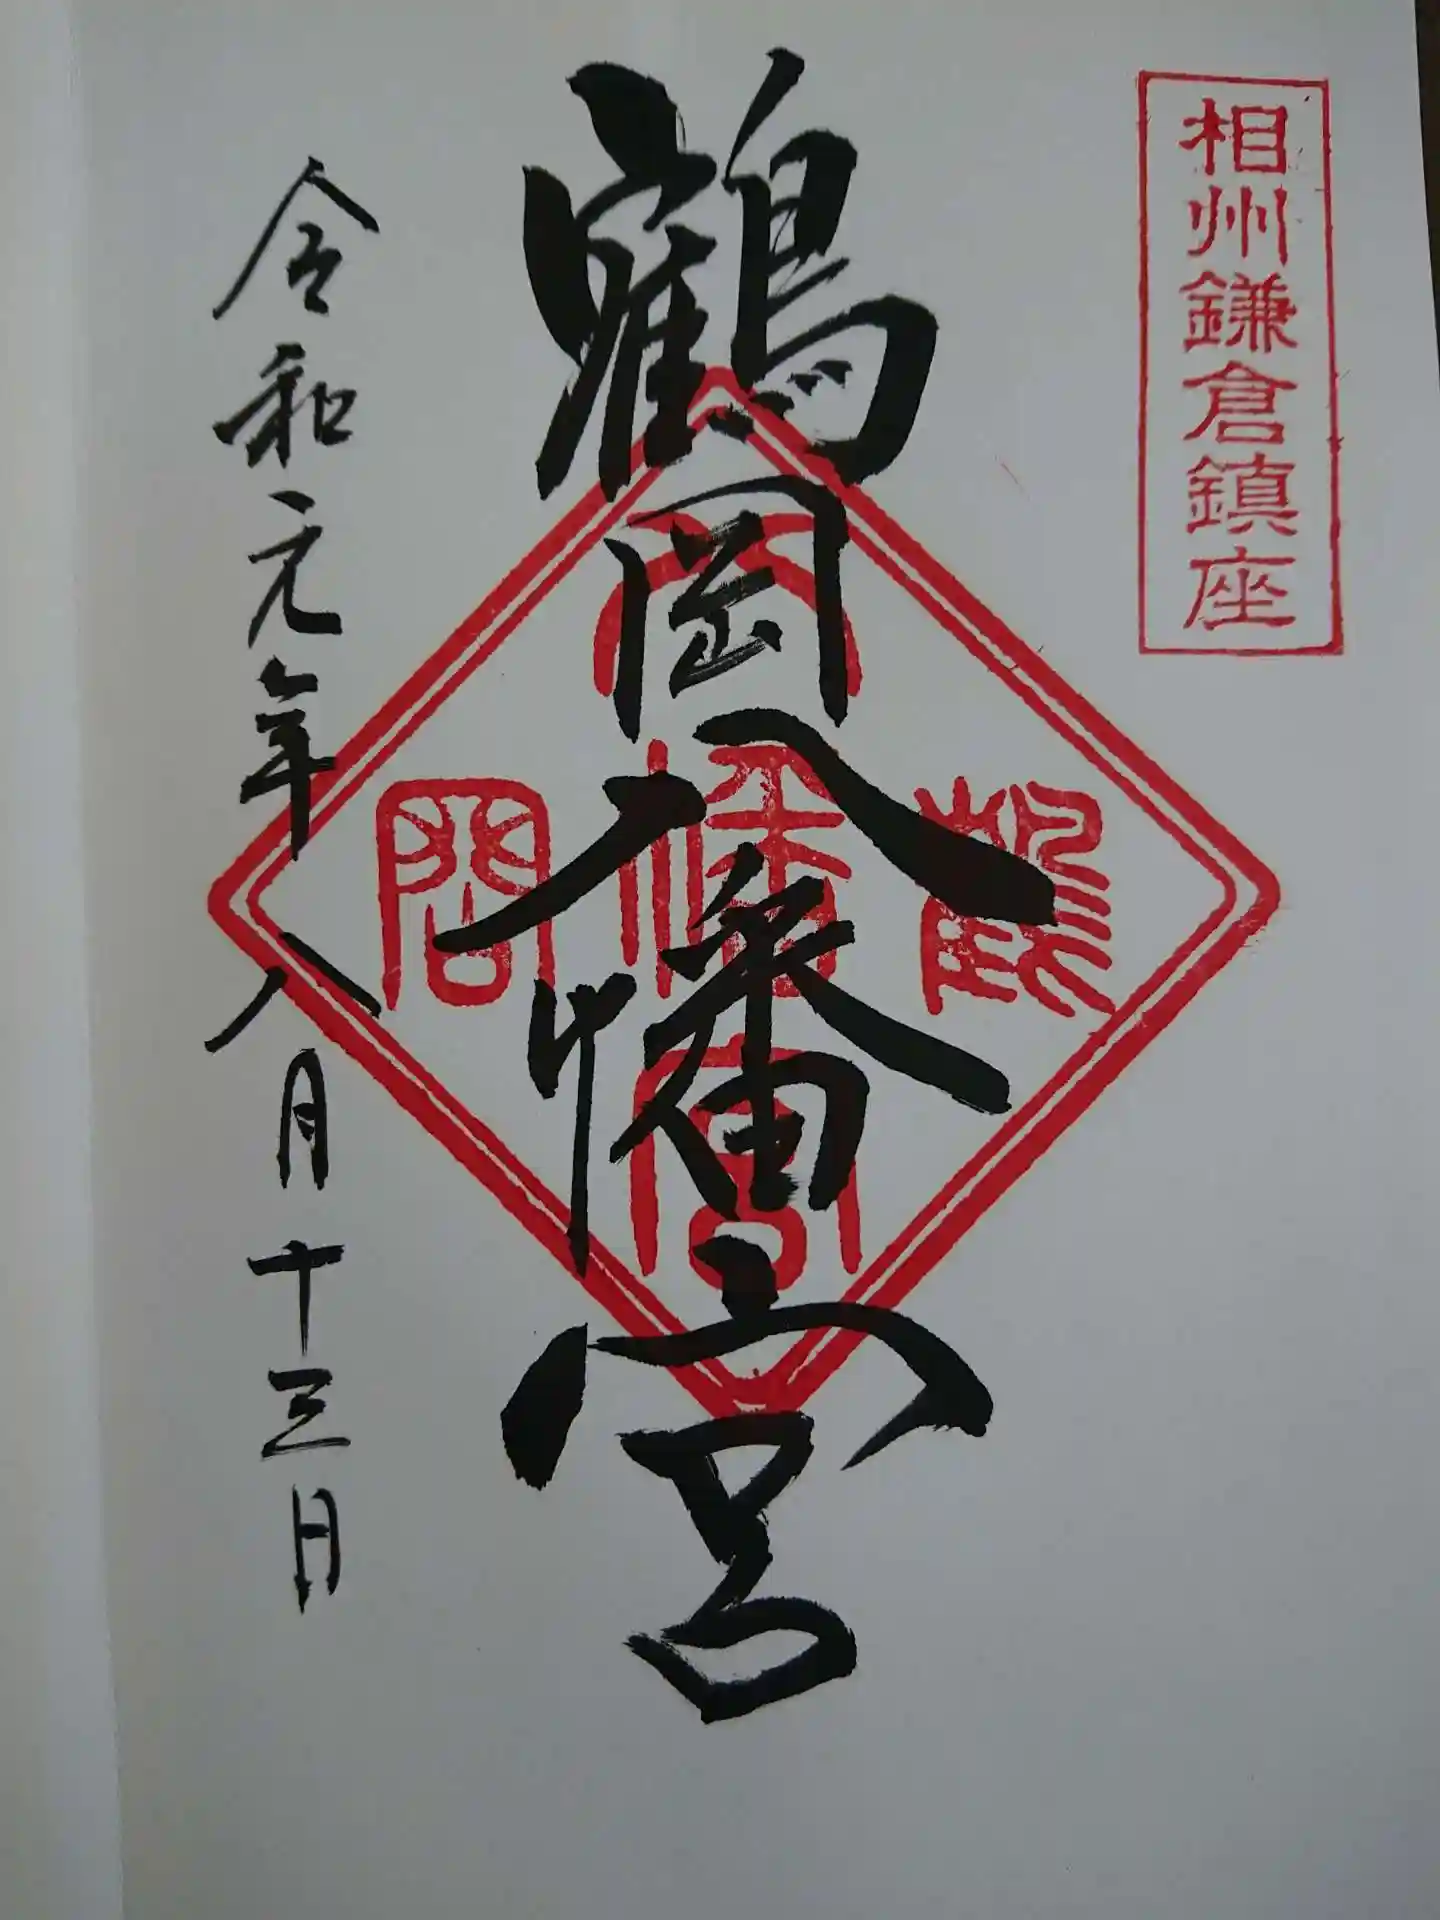 相州鎌倉鎮座
鶴岡八幡宮
鶴岡八幡宮
令和元年八月十三日